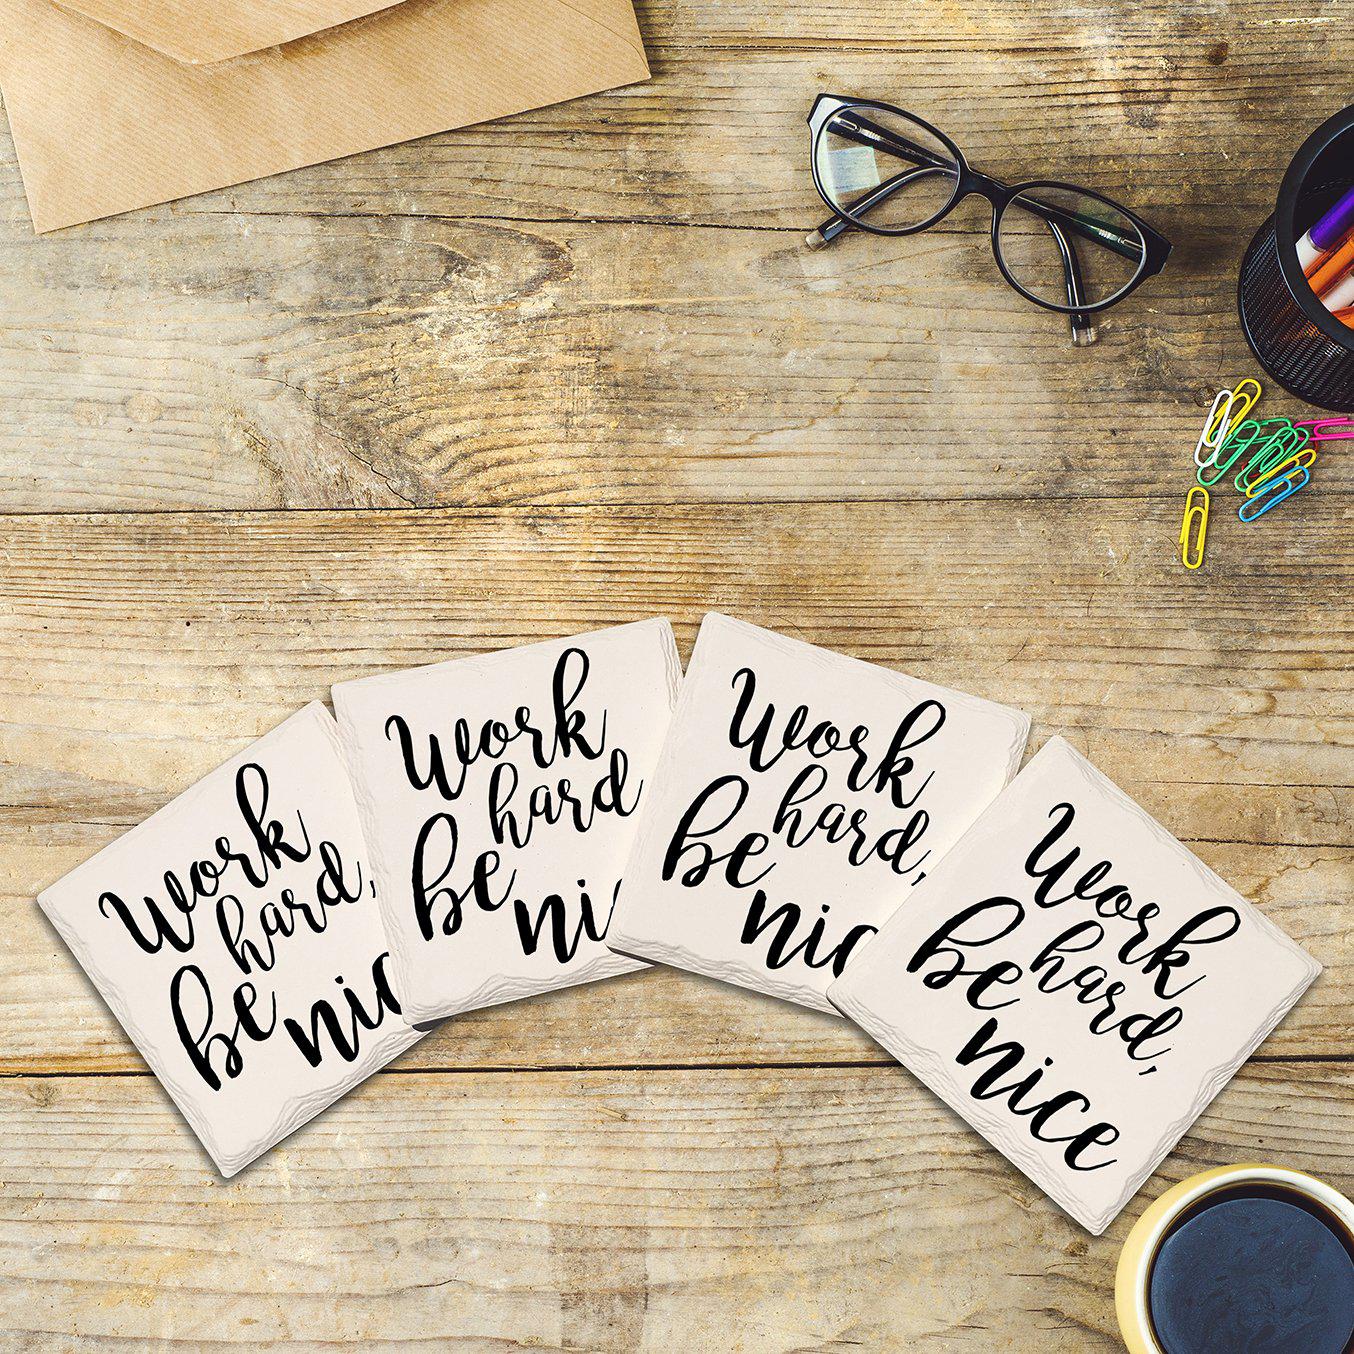 Work
hard,
be
nic
Work
hard
be
ni
Work
hard,
be
nic
Work
hard,
be
nice